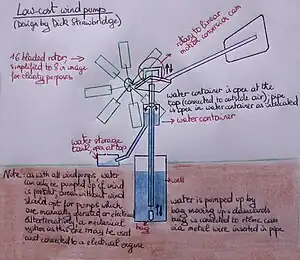 Low-cost wind pump
(design by Dick Strawbridge)
16 bladed rotor
simplified to 8 in image
for clarity purposes
rotary to linear
motion conversion cam
water container is open at the
top (connected to outside air) pipe
is open in water container as indicated
water container
water storage
tank open at top
well
bag
Note: as with all windpumps, water
can only be pumped up if wind
is present. Areas without wind
should opt for pumps which
are manually operated or electrical
and connected to a electrical engine
water is pumped up by
bag moving up & downwards
bag is connected to rtlmc cam
via metal wire inserted in pipe